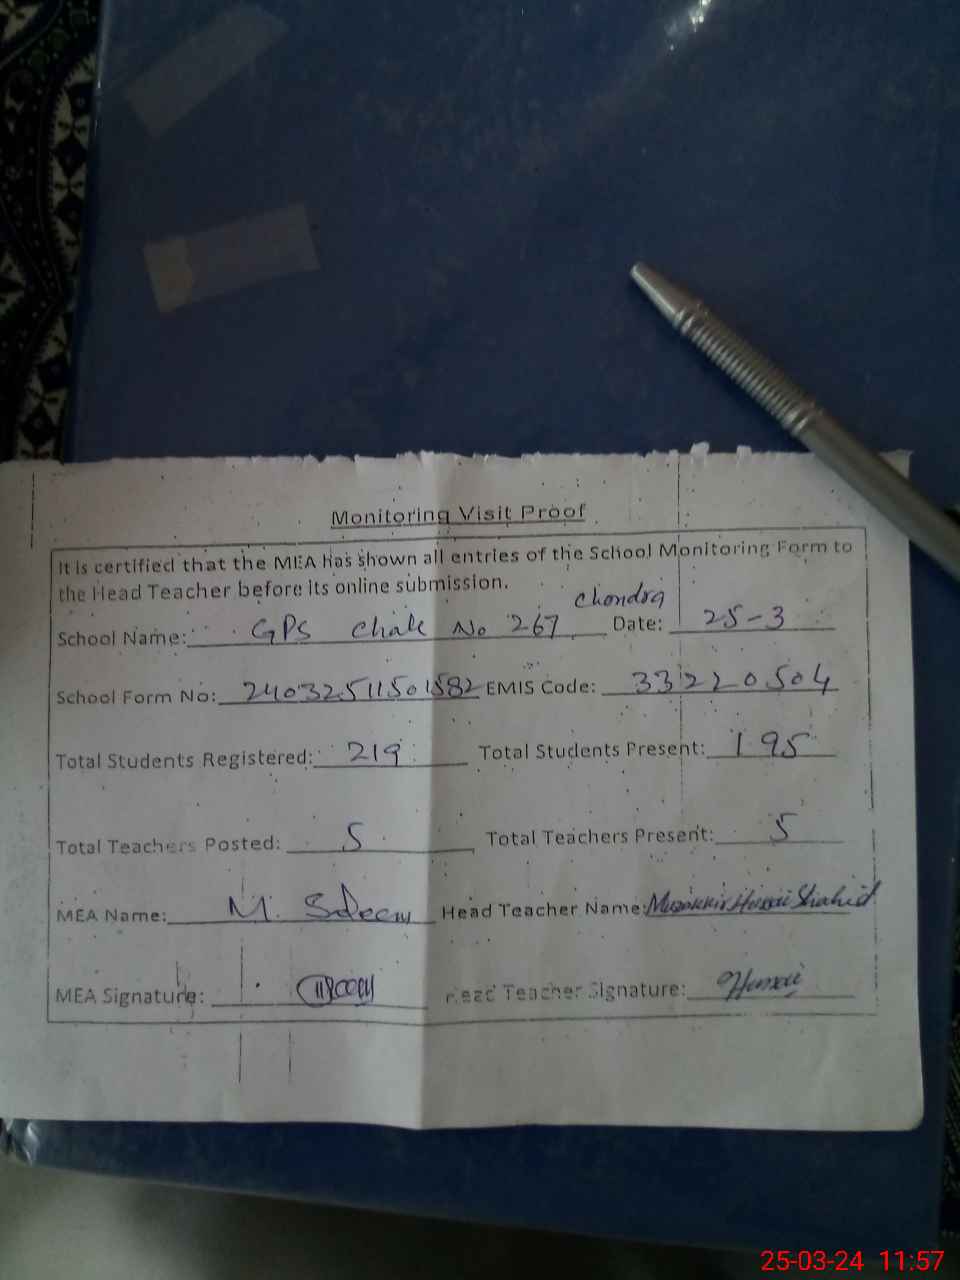 Monitoring Visit Proof
It is certified that the MEA has shown all entries of the School Monitoring Form to
the Head Teacher before its online submission.
School Name: GPS Chak No 267 Chondra Date: 25-3
School Form No: 24032511501582 EMIS Code: 33220504
Total Students Registered: 219 Total Students Present: 195
Total Teachers Posted: 5 Total Teachers Present: 5
MEA Name: M. Saleem Head Teacher Name: Hussain Shahid
MEA Signature: Head Teacher Signature:
25-03-24 11:57